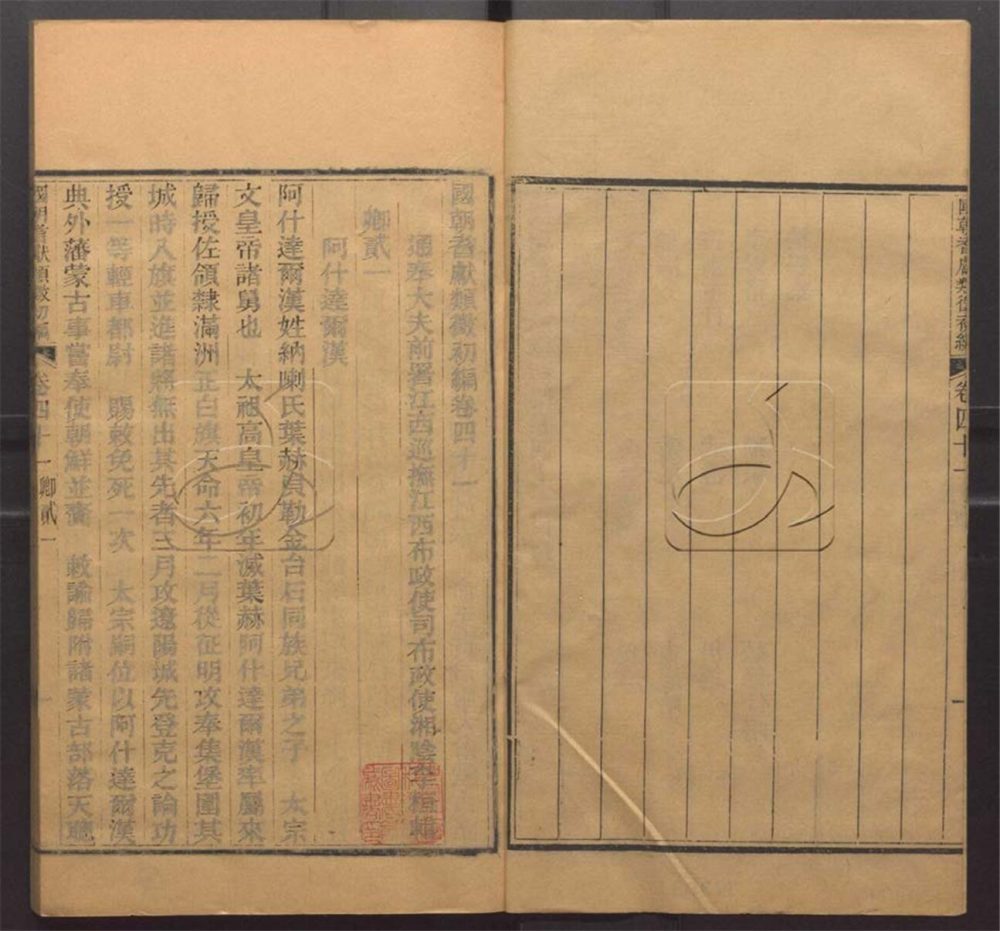 國朝耆獻類徵初編
卷四十一
一
國朝耆獻類徵初編卷四十一
通奉大夫前署江西巡撫江西布政使司布政使湘陰李桓輯
卿貳一
阿什達爾漢
阿什達爾漢姓納喇氏葉赫貝勒金台石同族兄弟之子　太宗
文皇帝諸舅也　太祖高皇帝初年滅葉赫阿什達爾漢率屬來
歸授佐領隸滿洲正白旗天命六年二月從征明攻奉集堡圍其
城時入旗並進諸將無出其先者三月攻遼陽城先登克之論功
授一等輕車都尉　賜敕免死一次　太宗嗣位以阿什達爾漢
典外藩蒙古事嘗奉使朝鮮並齎　敕諭歸附諸蒙古部落天聰
國朝耆獻類徵初編
卷四十一 卿貳一
一